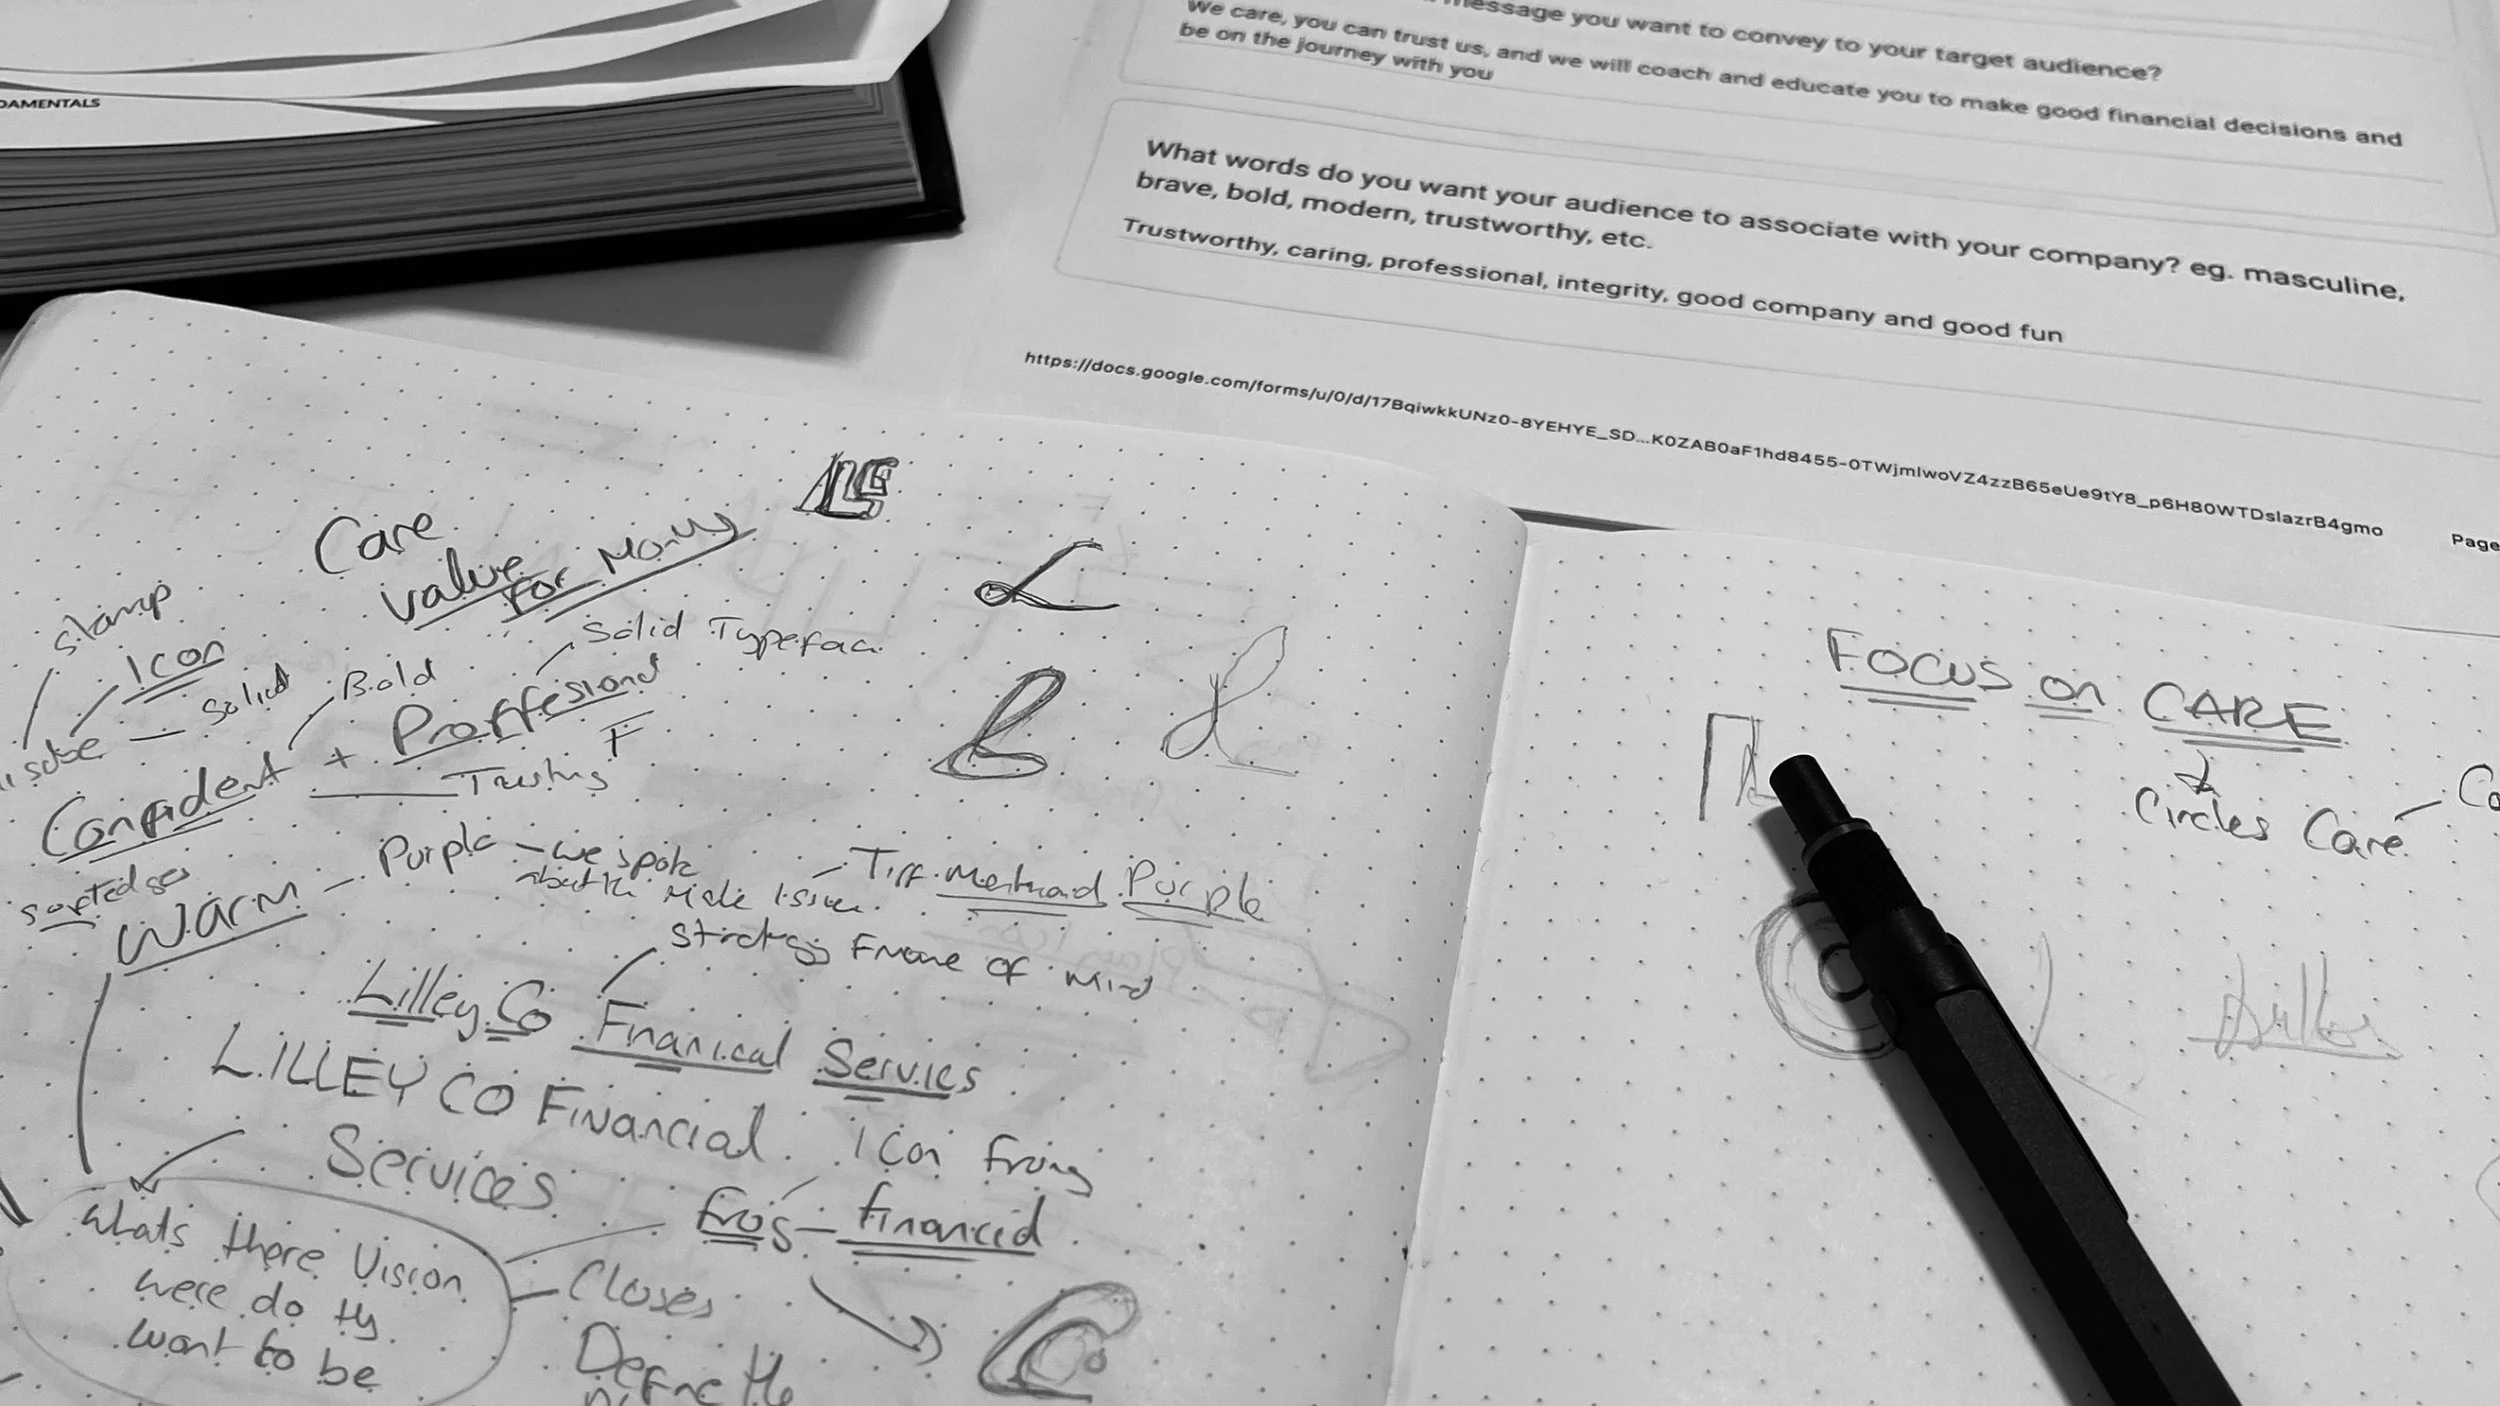 DAMENTALS
message you want to convey to your target audience?
We care, you can trust us, and we will coach and educate you to make good financial decisions and
be on the journey with you
What words do you want your audience to associate with your company? eg. masculine,
brave, bold, modern, trustworthy, etc.
Trustworthy, caring, professional, integrity, good company and good fun
https://docs.google.com/forms/u/0/d/17BqiwkkUNz0-8YEHYE_SD...K0ZAB0aF1hd8455-0TWjmIwoVZ4zzB65eUe9tY8_p6H80WTDslazrB4gmo
Page
Care
Value
For Money
Stamp
Icon
Solid
Bold
Solid Typefac
Confident + Proffesional
Trusting
F
Warm - Purple - we spok
about the Male issue
Tiff Purple
Strategy Frame of Mind
Lilley Co Finanical Servics
LILLEY CO Financial
Services
Icon
Financial
Whats there Vision
were do thy
want to be
Closes
Define the
FOCUS on CARE
Circles Care
Co